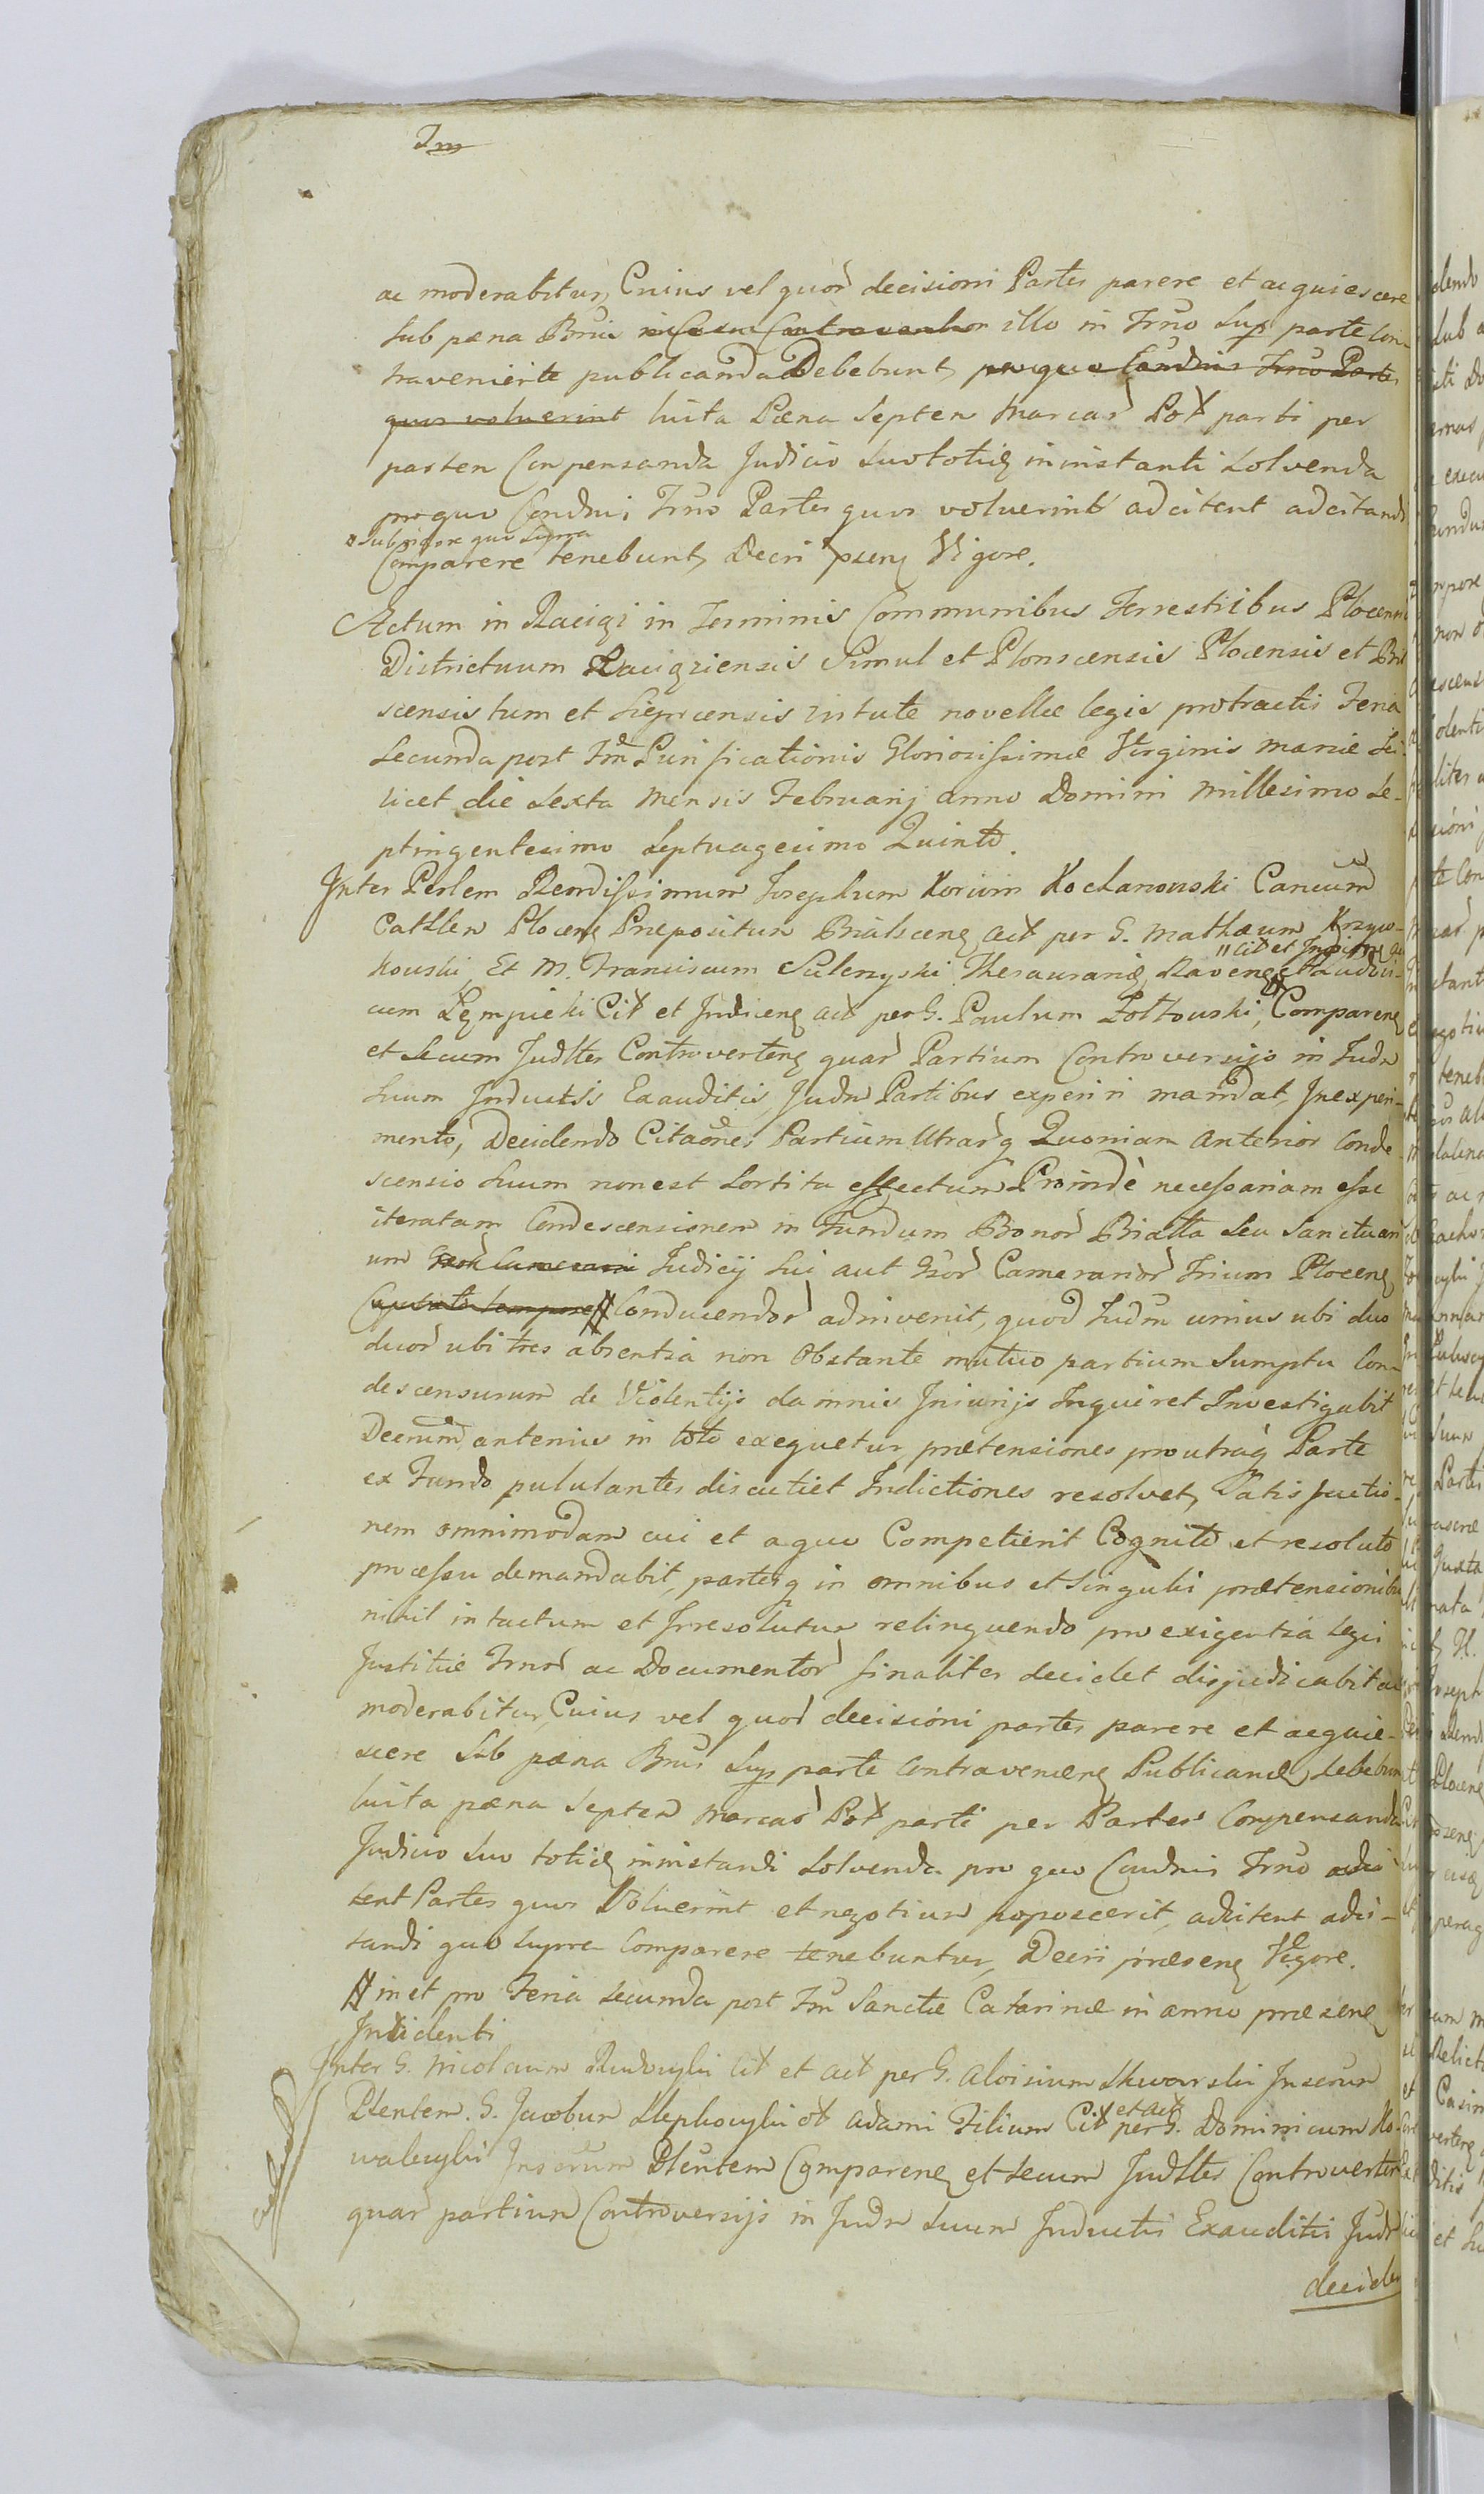 ac moderabitur, Cuius vel quor decisioni Partes parere et acquiescere
sub pæna Bnis in Casu Contravention illo in Trno sup parte con-
traveniente publicanda Debebunt, pro quo Condnis Trno Partes
quos voluerint luita Pæna Septem Marcar Pol parti per
partem Compensanda Judicio suo toties in instanti solvenda
pro quo Condnis Trno Partes quos voluerint adcitent adcitandi
sub rigore quo supra
Comparere tenebunt, Decri psens Vigore.
Actum in Raciąz in Terminis Communibus Terrestribus Plocens
Districtuum Raciąziensis Simul et Plonscensis Plocensis et Biel
scensis tum et Sieprcensis virtute novellæ legis protractis Feria
Secunda post Fm Purificationis Gloriosissimæ Virginis Mariæ Sci-
licet die Sexta Mensis Februarij anno Domini Millesimo Se-
ptingentesimo Septuagesimo Quinto.
Inter Perlem Rendissimum Josephum Korwin Kochanowski Cancum
Cathlem Plocens Præpositum Bialscens act per G. Mathæum Krzyw-
" Cit et
kowski Et M. Franciscum Sulenyski Thesaurariæ Ravens et Ludovi-
cum Lępnicki Cit et Indicens act per G. Paulum Żołtowski, Comparens
et secum Judlter Controvertens quar Partium Controversijs in Judm
suum Inductis Exauditis, Judm Partibus experiri mandat, In experi-
mento, Decidendo Citaones Partium Utrarq Quoniam anterior Conde-
scensio suum non est sortita effectum Proindè necessariam esse
iteratam Condescensionem in Fundum Bonor Białła seu Sanctuari
um Gsor Camerari Judicij sui aut Gsor Camerarior Trium Plocens
Capturato tempore # Conducendor adinvenit, quod Judm unius ubi duo
duor ubi tres absentia non Obstante mutuo partium sumptu Con-
descensurum de Violentijs damnis Iniurijs Inquiret Investigabit
Decrum anterius in toto exequetur prætensiones pro utraq Parte
ex Fundo pululantes discutiet Indictiones resolvet, Satisfactio-
nem omnimodam cui et a quo Competierit Cognito et resoluto
processu demandabit, partesq in omnibus et singulis prætensionibus
nihil intactum et Irresolutum relinquendo pro exigentia Legis
Justitiæ Trnor ac Documentor finaliter decidet disjudicabit ac
moderabitur, Cuius vel quor decisioni partes parere et acquie-
scere Sub pæna Bnis Sup parte contraveniens Publicandæ debebunt
luita pæna Septem Marcar Pol parti per Partem Compensanda
Judicio suo toties in instanti solvenda pro quo Condnis Trno adci
tent Partes quos Voluerint et negotium poposcerit, adcitent adci-
tandi quo supra Comparere tenebuntur, Decri præsens Vigore.
# in et pro Feria secunda post Fm Sanctæ Catarinæ in anno præsens
Incidenti
Inter G. Nicolaum Cit et act per G. Aloisium Skwarski Inserum
Plentem. G. Jacobum ol Adami Filium Cit et act per G. Dominicum Ko-
walewski Inserum Plentem Comparens et secum Judlter Controverten
quar partium Controversijs in Judm suum Inductis Exauditis Judm
deciden